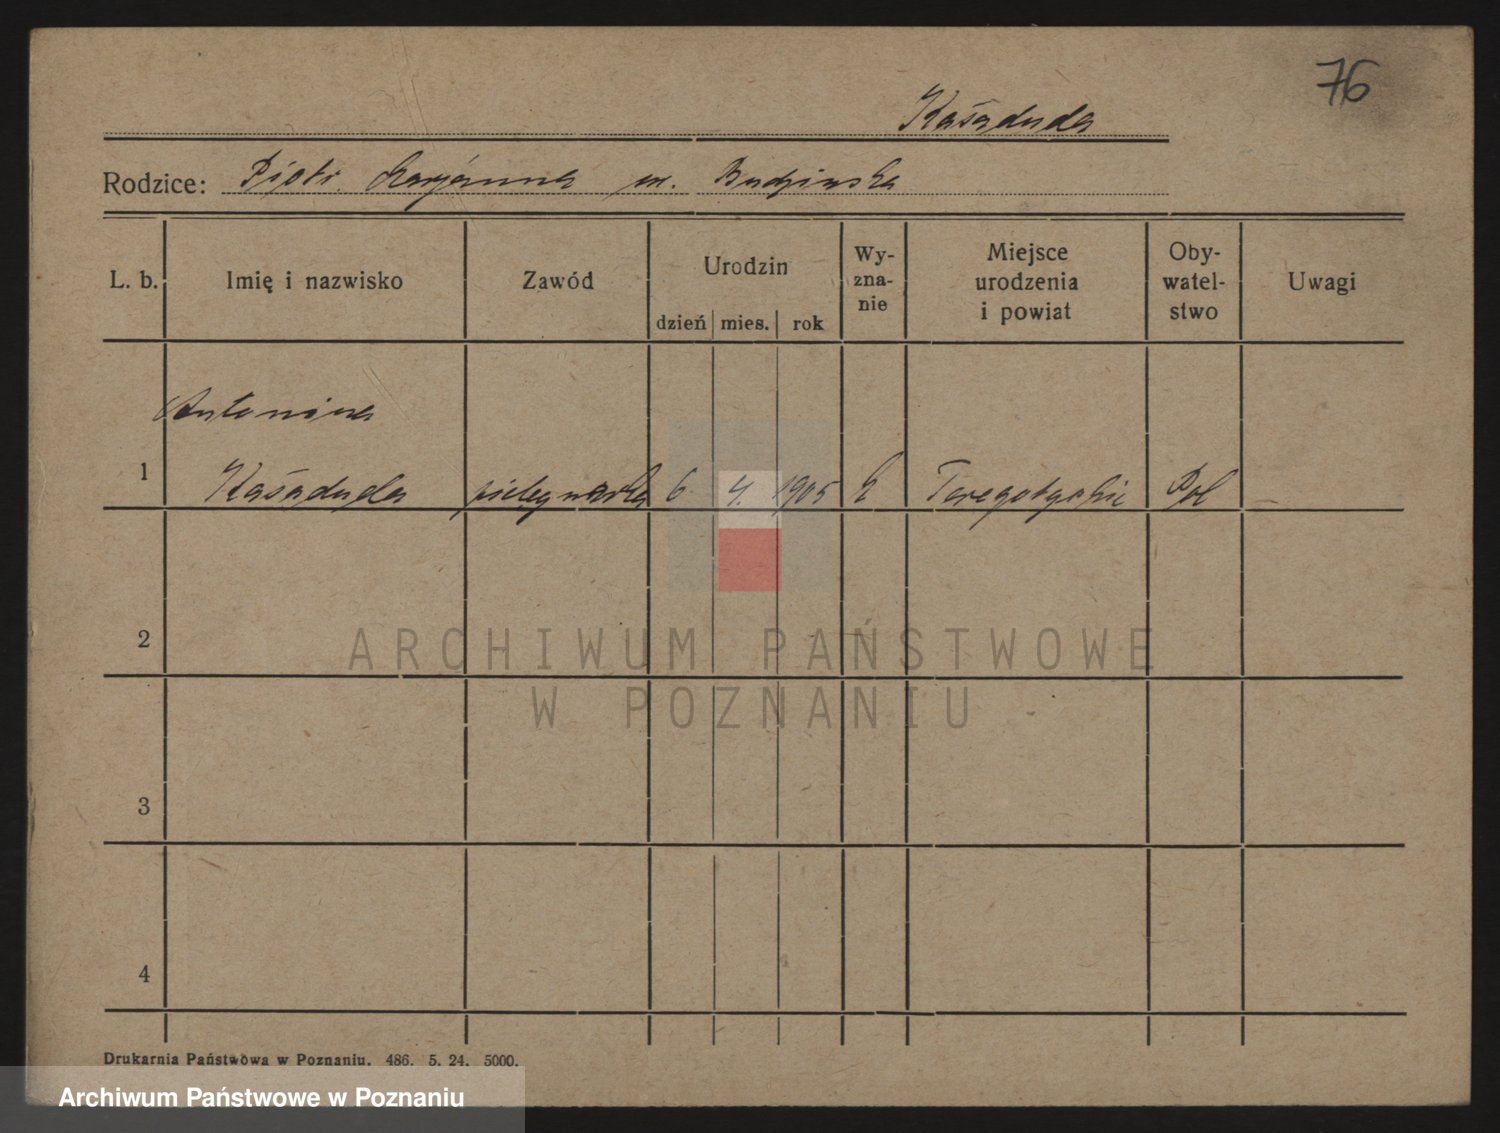 76
Kaśaduda
Rodzice: Piotr Maryanna ur. Budzinska
L. b. Imię i nazwisko Zawód Urodzin dzień mies. rok Wy-zna-nie Miejsce urodzenia i powiat Oby-watel-stwo Uwagi
Antonina
1 Kaśaduda pielegniarka 6. 4. 1905 k Pol —
2
3
4
ARCHIWUM PAŃSTWOWE
W POZNANIU
Drukarnia Państwowa w Poznaniu. 486. 5. 24. 5000.
Archiwum Państwowe w Poznaniu